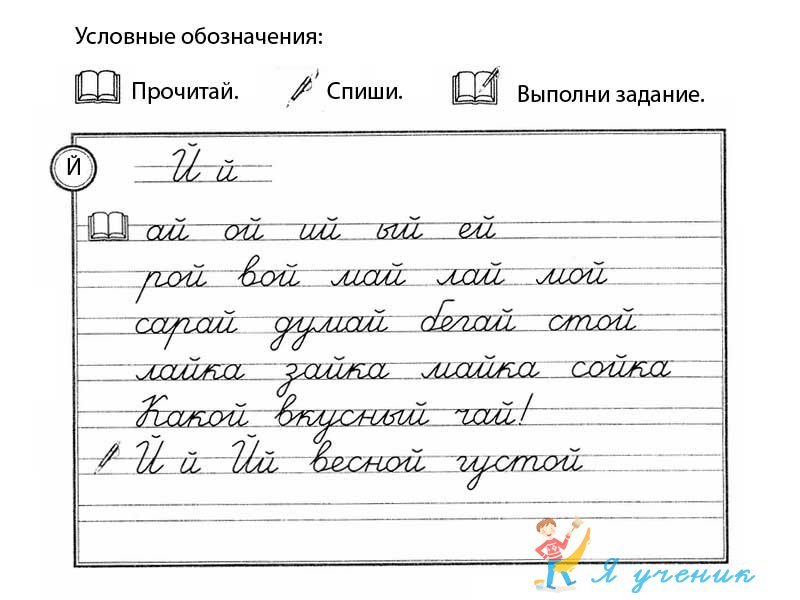 Условные обозначения:
Прочитай. Спиши. Выполни задание.
Й
Й й
ай ой ий ый ей
рой вой май лай мой
сарай думай бегай стой
лайка зайка майка сойка
Какой вкусный чай!
Й й Йй весной густой
Я ученик